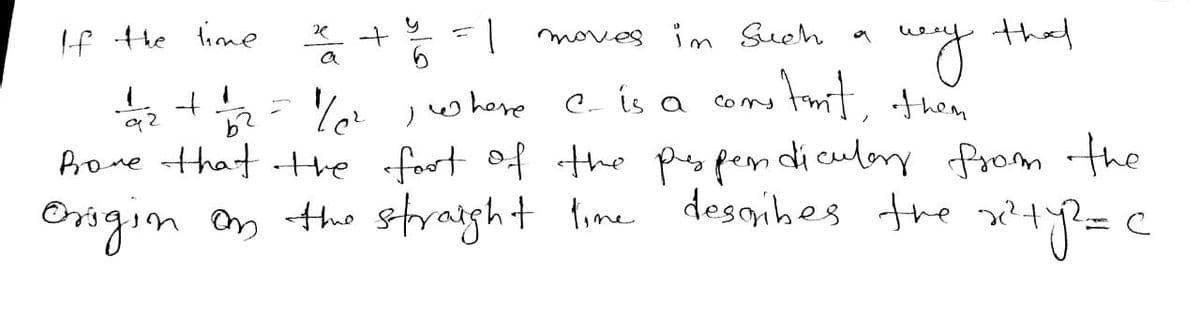 If the line x/a + y/b = 1 moves in such a way that
1/a2 + 1/b2 = 1/c2 , where c is a constant, then
Prove that the foot of the perpendicular from the
Origin on the straight line describes the x2+y2= c